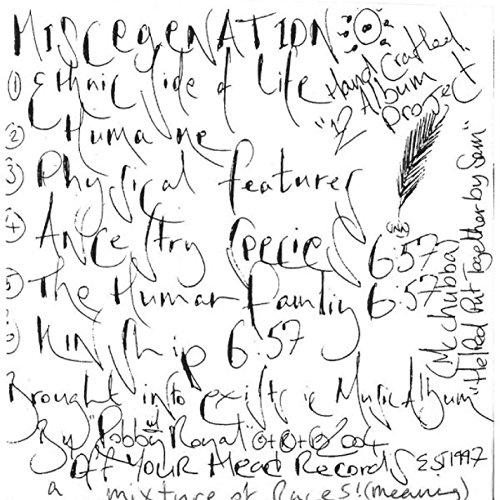 MISCEGENATION
Hand Crafted
"12 Album
Project
① Ethnic Side of Life
② Humane
③ Physical features
④ Ancestry Species 6:57
⑤ The Human Family 6:57
⑥ Kinship 6:57
Mc chubba
"Helped Put Together by Sam"
Brought into existence Music Album
By "Bobby Royal" 2004
Off Your Head Records EST 1997
a mixture of Races! (meaning)